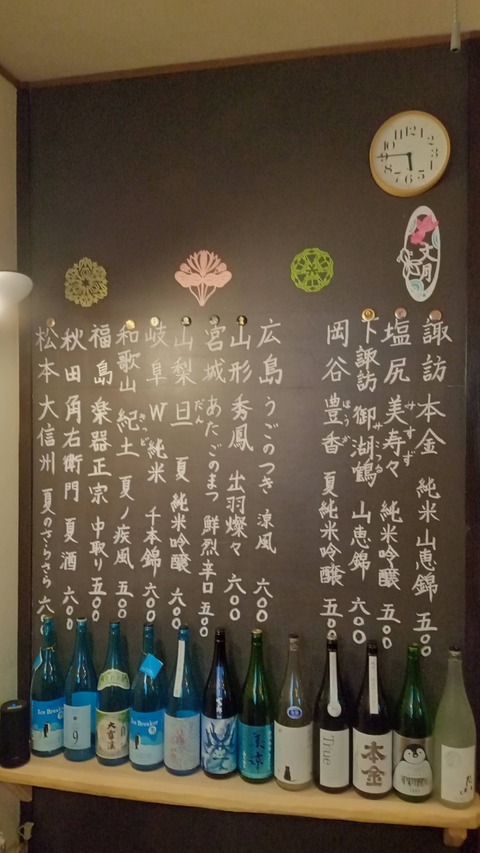 文月
諏訪 本金 純米 山恵錦 五〇〇
塩尻 美寿々 純米吟醸 五〇〇
みすず
下諏訪 御湖鶴 山恵錦 六〇〇
みつる
岡谷 豊香 夏純米吟醸 五〇〇
ほうか
広島 うごのつき 涼風 六〇〇
山形 秀鳳 出羽燦々 六〇〇
宮城 あたごのまつ 鮮烈辛口 五〇〇
山梨 旦 夏 純米吟醸 六〇〇
だん
岐阜 W 純米 千本錦 六〇〇
和歌山 紀土 夏ノ疾風 五〇〇
きっど
福島 楽器正宗 中取り 五〇〇
秋田 角右衛門 夏酒 六〇〇
松本 大信州 夏のさらさら 六〇〇
Ice Breaker
9
大信州
Ice Breaker
True
本金